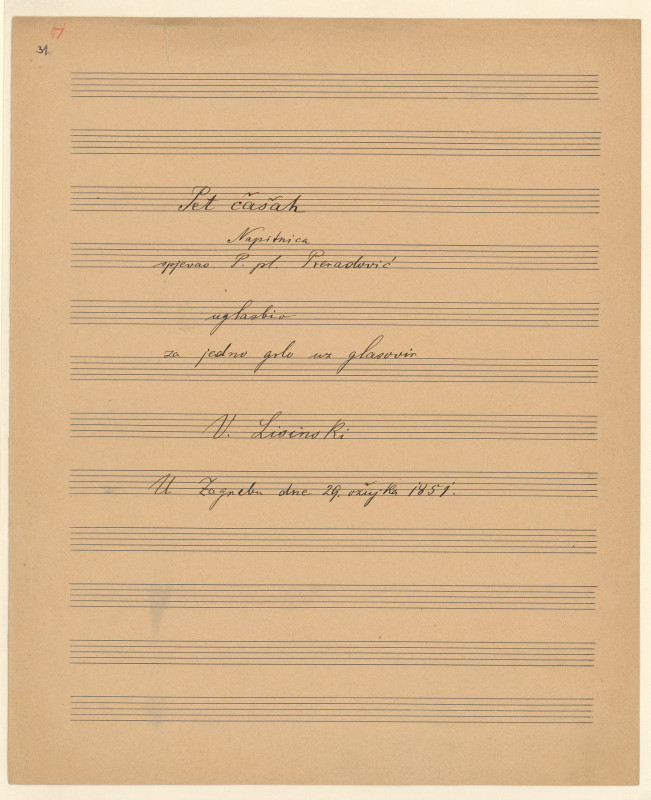 Pet čašah
Napitnica
spjevao P. pl. Preradović
uglasbio
za jedno grlo uz glasovir
V. Lisinski
U Zagrebu dne 29. ožujka 1851.